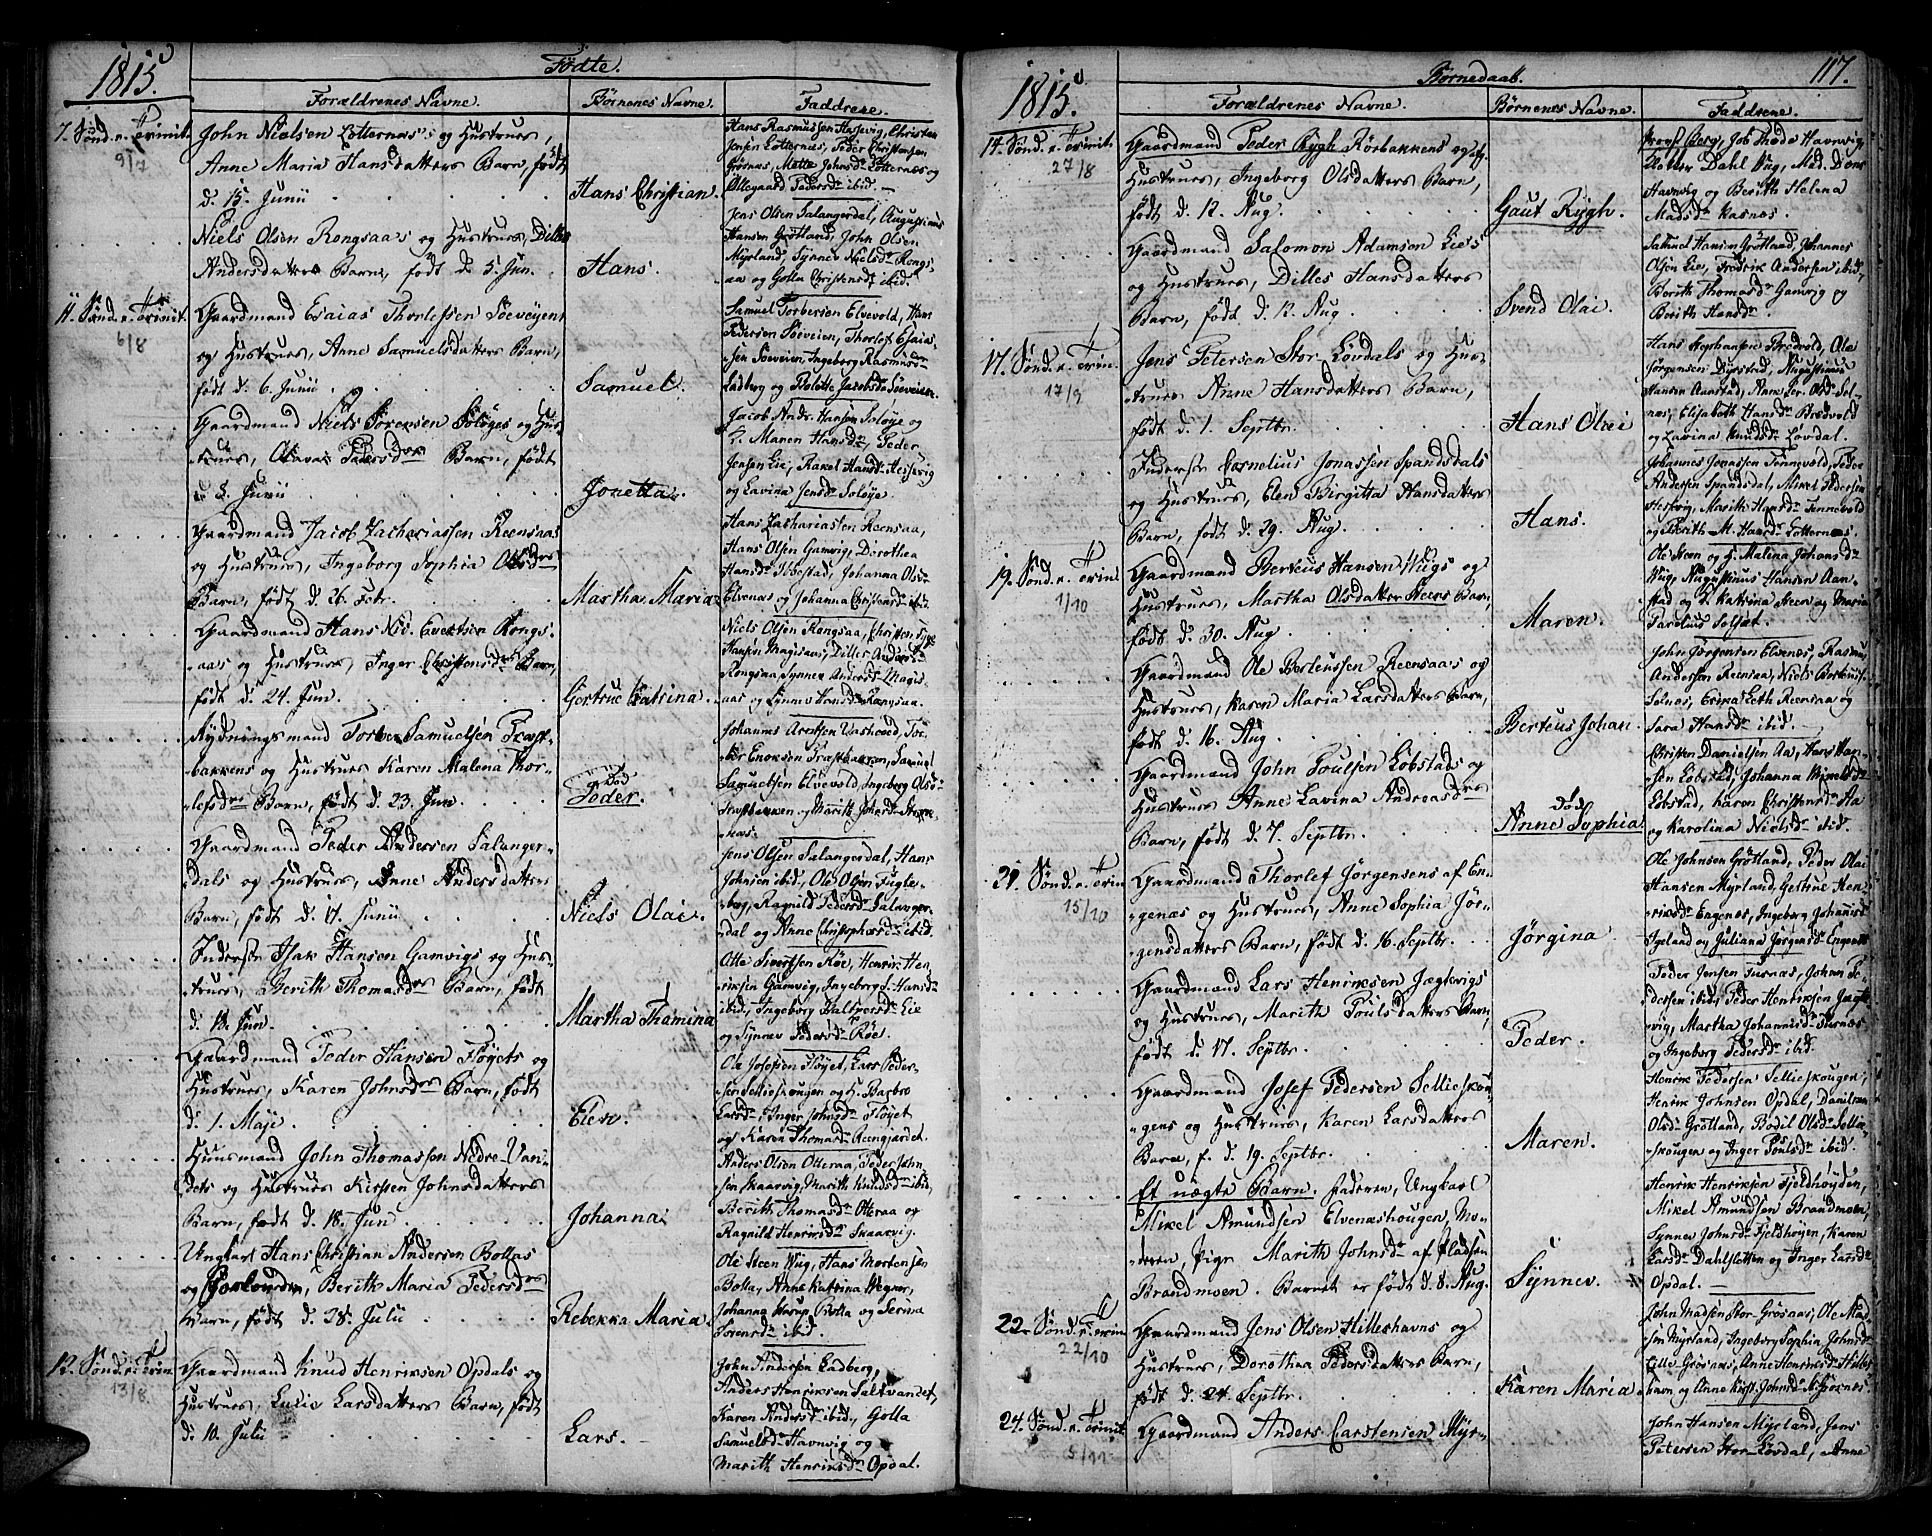 1815.
Fødte.
Forældrenes Navne.
Børnenes Navne.
Faddrene.
7. Sønd. e. Trinit.
9/7
John Nielsen Lotternæs's og Hustrues,
Anne Maria Hansdatters Barn, født
d. 15. Junii
Hans Christian.
Hans Rasmussen Hasevig, Christen
Jensen Lotternæs, Peder Christensen
Grønæs, Mette Johnsdr Lotternæs og
Ollegaard Pedersdr ibid.
Niels Olsen Rongsaa's og Hustrues, Dilles
Andersdatters Barn, født d. 5. Jun.
Hans.
Jens Olsen Salangerdal, Augustinus
Hansen Grøtland, John Olsen
Myrland, Synnev Nielsdr Rongs-
aa og Golla Christensdr ibid.
11. Sønd. e. Trinit.
6/8
Gaardmand Esaias Thorlefsen Søeveiens
og Hustrues, Anne Samuelsdatters Barn,
født d. 6. Junii
Samuel.
Samuel Torbersen Elvevold, Hans
Pedersen Søeveien, Thorlef Esaia-
sen Søeveien, Ingeborg Rasmusdr
Ladberg og Jacobsdr Søeveien.
Gaardmand Niels Sørensen Soløyes og Hus-
trues, Olava Pedersdrs Barn, født
d. 3. Junii
Jonetta.
Jacob Andr. Hansen Soløye og
H. Maren Hansdr, Peder
Jensen Lie, Rakel Hansdr Hessevig
og Lavina Jensdr Soløye.
Gaardmand Jacob Zachariassen Reensaas
og Hustrues, Ingeborg Sophia Olsdrs
Barn, født d. 26. Febr.
Martha Maria
Hans Zachariassen Reensaa,
Hans Olsen Gamvig, Dorothea
Hansdr Ibbestad, Johanna Olsdr
Elvenæs og Johanna Christensdr ibid.
Gaardmand Hans Nic. Evertsen Rongs-
aas og Hustrues, Inger Christensdrs Barn,
født d. 24. Jun.
Gertrue Catrina.
Niels Olsen Rongsaa, Christen
Hansen Magisaas, Dilles Andersdr
Rongsaa, Synnev Andersdr Magis-
aas og Synnev Hansdr Rongsaa.
Rydningsmand Torber Samuelsen Præst-
bakkens og Hustrues Karen Malena Thor-
lefsdrs Barn, født d. 23. Jun.
død
Peder.
Johannes Arntsen Vashoved, Tor-
ber Enoksen Præstbakken, Samuel
Samuelsen Elvevold, Ingeborg Olsdr
Præstbakken og Marith Johansdr
næs.
Gaardmand Peder Andersen Salanger-
dals og Hustrues, Anne Andersdatters
Barn, født d. 17. Junii
Niels Olai.
Jens Olsen Salangerdal, Hans
Johnsen ibid, Ole Olsen Fugle-
berg, Ragnild Pedersdr Salanger-
dal og Anne Christophersdr ibid.
Inderst Isak Hansen Gamvigs og Hus-
trues, Berith Thomasdrs Barn, født
d. 18. Jun.
Martha Thomina
Otte Sivertsen Røe, Henrik Hen-
riksen Gamvig, Ingeborg L. Hansdr
ibid, Ingeborg Halvorsdr Lie
og Synnev Pedersdr Røe.
Gaardmand Peder Hansen Fløyets og
Hustrues, Karen Johnsdrs Barn, født
d. 1. Maji
Elen.
Ole Josefsen Fløyet, Lars Peder-
sen Sellieskougen og H. Barbro
Larsdr, Inger Johnsdr Fløyet
og Karen Thomasdr Reengjerdet.
Huusmand John Thomassen Nedre-Van-
dets og Hustrues Kirsten Johnsdatters
Barn, født d. 18. Jun.
Johanna
Anders Olsen Otteraa, Peder John-
sen Skaarvig, Marith Knudsdr ibid,
Berith Thomasdr Otteraa og
Ragnild Henriksdr Skaarvig.
Ungkarl Hans Christian Andersen Bollas
og Forlovedes, Berith Maria Pedersdrs
Barn, født d. 28. Julii
Rebekka Maria.
Ole Steen Vug, Hans Mortensen
Bolla, Anne Katrina Wegner,
Johanna Bolla og Serina
Sørensdr ibid.
12. Sønd. e. Trin.
13/8
Gaardmand Knud Henriksen Opdals og
Hustrues, Lucie Larsdatters Barn, født
d. 10. Julii
Lars.
John Andersen Ladberg,
Anders Henriksen Saltvandet,
Karen Andersdr ibid, Golla
Samuelsdr Havnvig og
Marith Henriksdr Opdal.
1815.
Børnedaab.
117.
Forældrenes Navne.
Børnenes Navne.
Faddrene.
14. Sønd. e. Trinit.
27/8
Gaardmand Peder Rygh Rørbakkens og
Hustrues, Ingeborg Olsdatters Barn,
født d. 12. Aug.
Gaut Rygh.
Provst Berg, Job Thode Havnvig,
Dahl Vug, Mad. Dons
Havnvig og Berith Helena
Madsdr Kasnes.
Gaardmand Salomon Adamsen Lies
og Hustrues, Dilles Hansdatters
Barn, født d. 12. Aug.
Svend Olai.
Samuel Hansen Grøtland, Johannes
Olsen Lie, Fredrik Andersen ibid,
Berith Thomasdr Gamvig og
Berith Hansdr.
17. Sønd. e. Trin.
17/9
Jens Petersen Stor Løvdals og Hus-
trues Anne Hansdatters Barn,
født d. 1. Septbr.
Hans Olai
Hans Bredvold, Ole
Jørgensen Dyrstad, Augustinus
Hansen Aanstad, Anne Olsdr Sol-
næs, Elisabeth Hansdr Bredvold
og Lavina Knudsdr Løvdal.
Inderst Cornelius Jonassen Spandsdals
og Hustrues, Elen Birgitta Hansdatters
Barn, født d. 29. Aug.
Hans.
Johannes Jonassen Tennevold, Peder
Andersen Spandsdal, Mikel Pedersen
Hesvig, Marith Hansdr Tennevold
og Berith M. Hansdr Lotternæs.
19. Sønd. e. Trin.
1/10
Gaardmand Berteus Hansen Wugs og
Hustrues, Martha Olsdatter Steens Barn,
født d. 30. Aug.
Maren.
Ole Steen og H. Malena Johansdr
Wug, Augustinus Hansen Aan-
stad og H. Katrina Steen og Maria
Parelius Solset.
Gaardmand Ole Berteussen Reensaas og
Hustrues, Karen Maria Larsdatters Barn,
født d. 16. Aug.
Berteus Johan.
John Jørgensen Elvenes, Rasmus
Andersen Reensaa, Niels Berteuss.
Solnes, Erika Leth Reensaa og
Sara Hansdr ibid.
Gaardmand John Poulsen Løbstads og
Hustrues Anne Lavina Andreasdrs
Barn, født d. 7. Septbr.
død
Anne Sophia
Christen Danielsen Aa, Hans Han-
sen Løbstad, Johanna Mikelsdr
Løbstad, Karen Christensdr Aa
og Karolina Nielsdr ibid.
21. Sønd. e. Trin.
15/10
Gaardmand Thorlef Jørgensens af En-
genæs og Hustrues, Anne Sophia Jør-
gensdatters Barn, født d. 16. Septbr.
Jørgina
Ole Johnsen Grøtland, Peder Olai
Hansen Myrland, Gertrue Hen-
riksdr Engenes, Ingeborg Johannisdr
Igeland og Juliana Jørgensdr Engenes
Gaardmand Lars Henriksen Jægtevigs
og Hustrues, Marith Poulsdatters Barn,
født d. 17. Septbr.
Peder.
Peder Jensen Furnæs, Johan Pe-
dersen ibid, Peder Henriksen Jægte-
vig, Martha Johannisdr Furnæs
og Ingeborg Pedersdr ibid.
Gaardmand Josef Pedersen Sellieskou-
gens og Hustrues, Karen Larsdatters
Barn, f. d. 19. Septbr.
Maren.
Henrik Pedersen Sellieskougen,
Henrik Johnsen Opdal, Danil
Olsdr Grøtland, Bodil Olsdr Sellie-
skougen og Inger Poulsdr ibid.
Et uægte Barn. Faderen, Ungkarl
Mikel Amundsen Elvenæshougen, Mo-
deren, Pige Marith Johnsdr af Pladsen
Brandmoen. Barnet er født d. 8. Aug.
Synnev.
Henrik Henriksen Fjeldhøyden,
Mikel Amundsen Brandmoen,
Synnev Johnsdr Fjeldhøyen, Karen
Larsdr Dahlsletten og Inger Larsdr
Opdal.
22. Sønd. e. Trin
22/10
Gaardmand Jens Olsen Hilleshavns og
Hustrues, Dorothea Pedersdatters Barn,
født d. 24. Septbr.
Karen Maria
John Madsen Stor Grøsaas, Ole Mad-
sen Myrland, Ingeborg Sophia Johnsdr
Lille Grøsaas, Anne Henriksdr Hilles-
havn og Anne Kirst. Johnsdr
24. Sønd. e. Trinit
5/11
Gaardmand Anders Carstensen Myr-
John Hansen Myrland, Jens
Petersen Stor-Løvdal, Anne